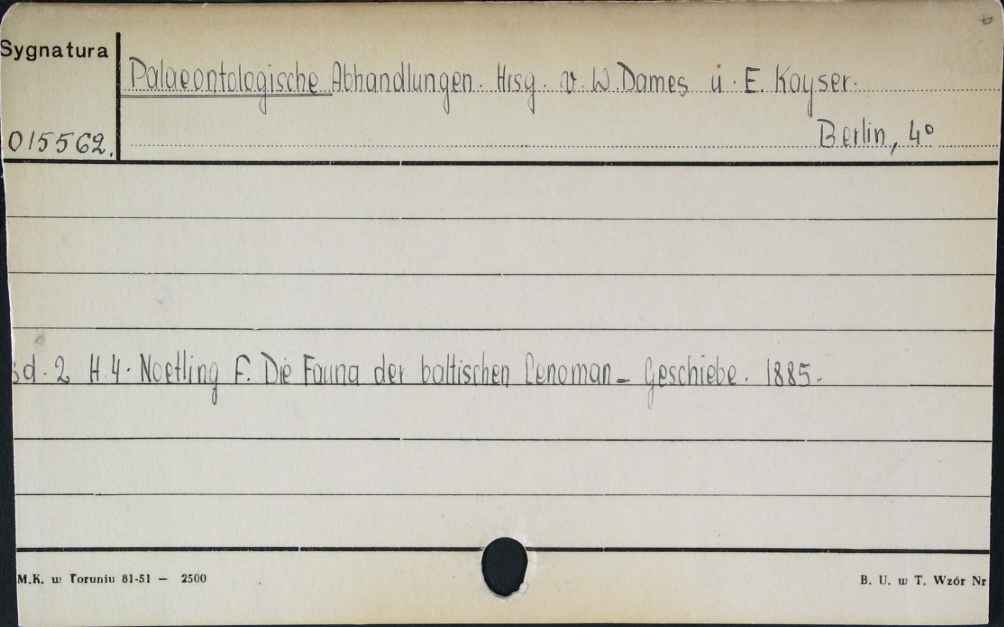 Sygnatura
Palaeontologische Abhandlungen. Hrsg. v. W. Dames u. E. Kayser.
015562.
Berlin, 4°
Bd. 2 H. 4. Noetling F. Die Fauna der baltischen Cenoman - Geschiebe. 1885.
M.K. w Toruniu 81-51 — 2500
B. U. w T. Wzór Nr